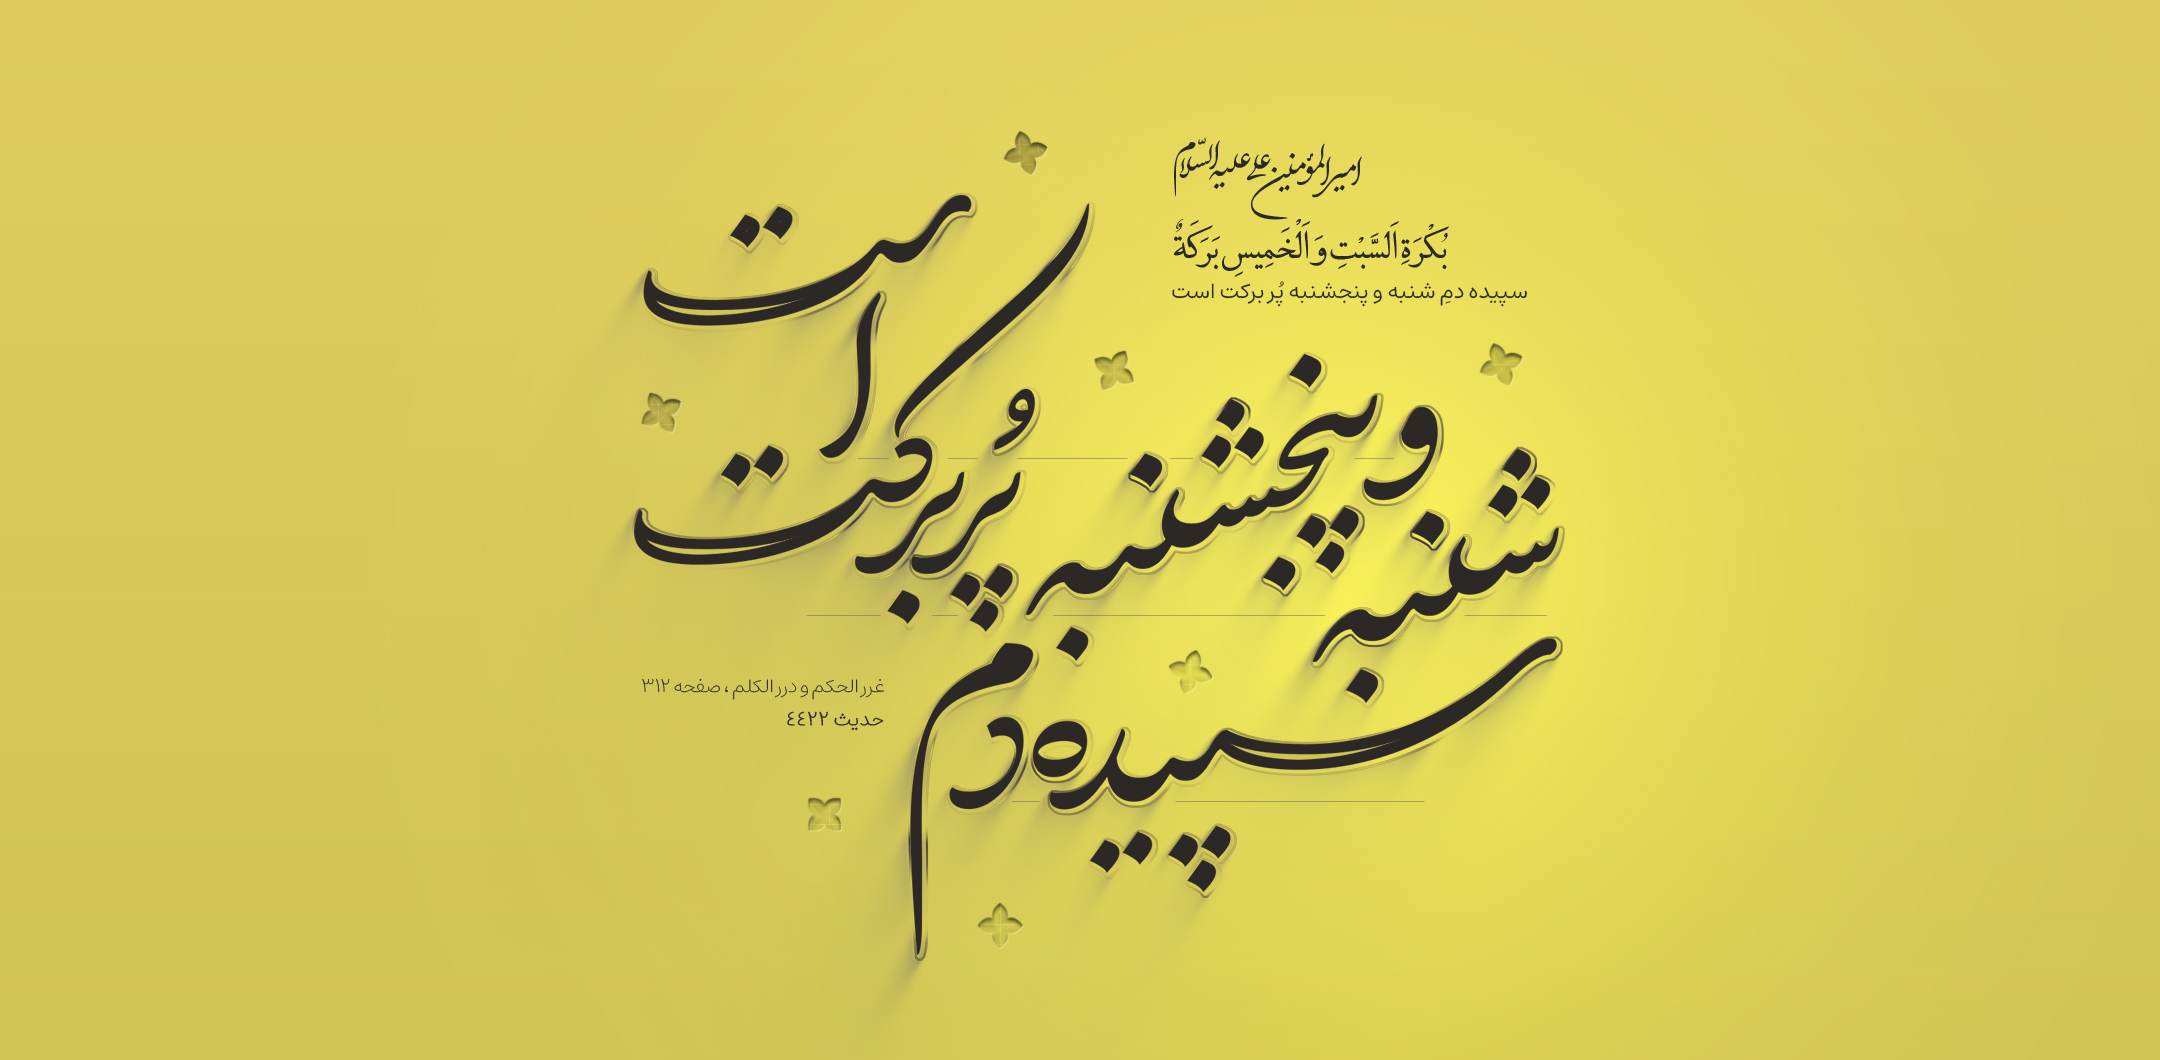 امیرالمؤمنین علی علیه السّلام
بُكْرَةِ اَلسَّبْتِ وَ اَلْخَمِيسِ بَرَكَةٌ
سپیده دمِ شنبه و پنجشنبه پُر برکت است
سپیده دم
شنبه
و پنجشنبه
پُر برکت
است
غرر الحکم و درر الکلم ، صفحه ۳۱۲
حدیث ٤٤٢٢